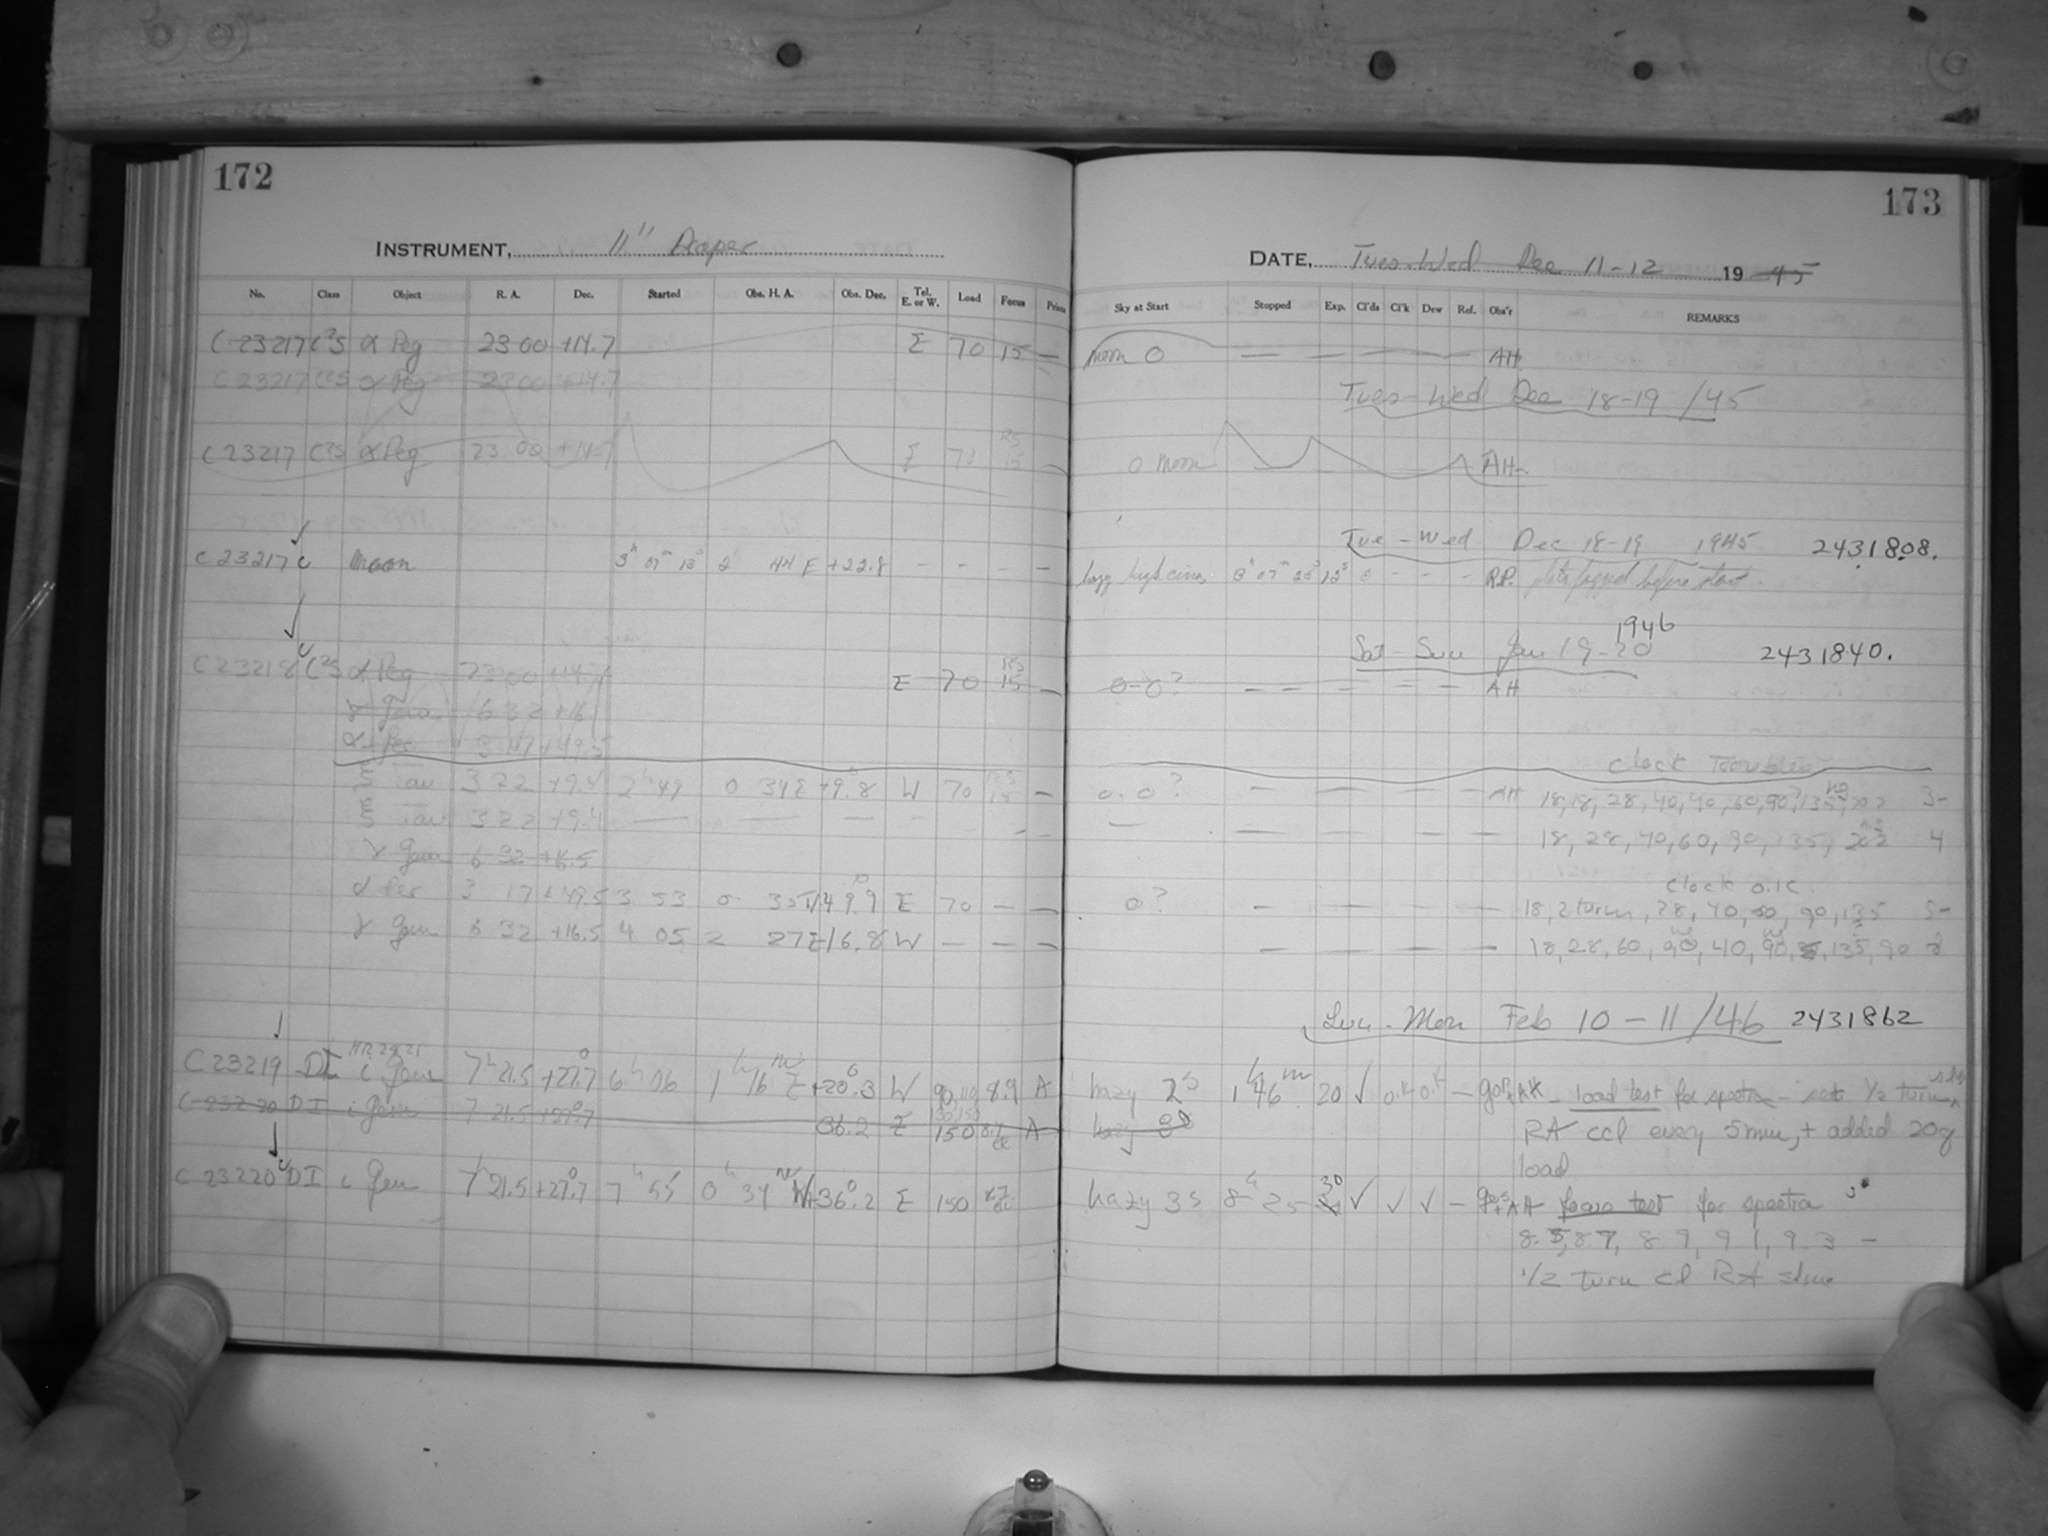 172
INSTRUMENT, 11" Draper
No. Class Object R. A. Dec. Started Obs. H. A. Obs. Dec. Tel. E. or W. Load Focus
C 23217 C²S α Peg 23 00 +14.7 E 70 15 —
C 23217 C²S α Peg 23 00 +14.7
C 23217 C²S α Peg 23 00 +14.7 E 70 15 —
C 23217 C Moon 3h 07m 13s 2 44 E +22.8 - - - -
C 23218 C²S α Peg 23 00 +14.7 E 70 15 —
γ Gem 6 32 +16
α Per 3 17 +49.5
ξ Tau 3 22 +9.4 2h 49 0 34 E +9.8 W 70 15 —
ξ Tau 3 22 +9.4 — — — - - - -
γ Gem 6 32 +16.5
α Per 3 17 +49.5 3 53 0 35 W 49.9 E 70 — —
γ Gem 6 32 +16.5 4 05 2 27 E 16.8 W — — —
C 23219 DI ι Gem 7h 21.5 +27.7 6h 06 1h 16m E +20.3 W 90, 110 8.9 A
C 23220 DI ι Gem 7 21.5 +27.7 36.2 E 150 8.7 A
C 23220 DI ι Gem 7h 21.5 +27.7 7h 55 0h 34m W +36.2 E 150
173
DATE, Tues-Wed Dec 11-12 19 45
Sky at Start Stopped Exp. Cl'ds Cl'k Dew Ref. Obs'r REMARKS
moon 0 — — — — — AH
Tues-Wed Dec 18-19 /45
0 moon AH
Tue-Wed Dec 18-19 1945 2431808.
hazy high cirrus 3h 07m 25s 12s 0 - - - R.P. plate fogged before start.
1946
Sat-Sun Jan 19-20 2431840.
0-0? — — — — — AH
Clock Troubles
0.0? — — — — — AH 18, 18, 28, 40, 40, 60, 90, 135, 202 3-
— — — — — — 18, 28, 40, 60, 90, 135, 202 4
Clock o.k.
0? — — — — — 18, 2 turns, 28, 40, 60, 90, 135 5-
— — — — — 18, 28, 60, 90, 40, 90, 135, 90
Sun-Mon Feb 10-11/46 2431862
hazy 2s 1h 46m 20 ✓ o.k o.k — load test for spectra - set 1/2 turn
hazy RA ccl every 5min, + added 20g
load
hazy 3s 8h 25 30 ✓ ✓ ✓ — focus test for spectra
8.5, 8.7, 8.9, 9.1, 9.3 —
1/2 turn cl RA